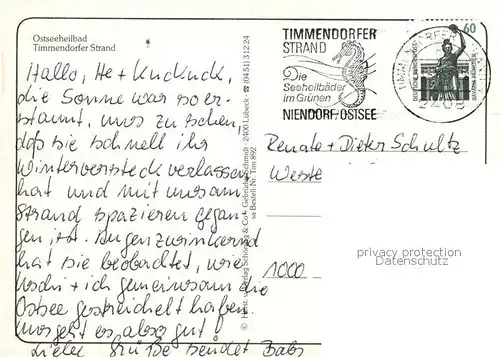 Ostseeheilbad
Timmendorfer Strand
Hallo, He + Kuckuck,
die Sonne war so er-
staunt, uns zu sehen,
daß sie schnell ihr
Winterversteck verlassen
hat und mit uns am
Strand spazieren gegan-
gen ist. Augenzwinkernd
hat sie beobachtet, wie
Uschi + ich gemeinsam die
Ostsee gestreichelt haben.
uns geht es also gut!
Liebe Grüße sendet Babs
© Herst. u. Verlag Schöning & Co. + Gebrüder Schmidt · 2400 Lübeck · ☎ (04 51) 3 12 24
sa Bestell-Nr. Tim 892
TIMMENDORFER
STRAND
Die
Seeheilbäder
im Grünen
NIENDORF/OSTSEE
2408
60
DEUTSCHE BUNDESPOST
Renate + Dieter Schultz
Weste
1000
privacy protection
Datenschutz